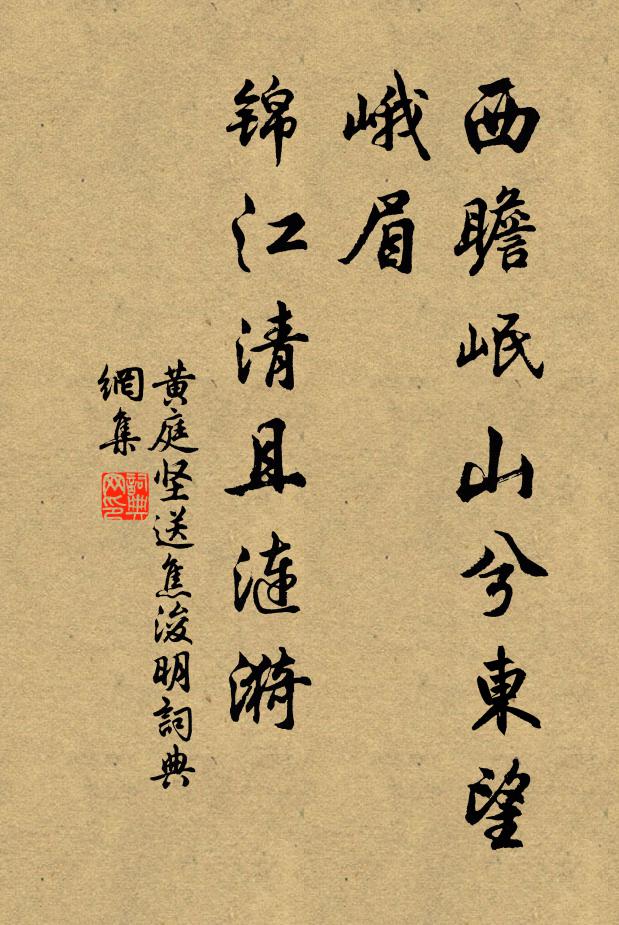 西瞻岷山兮東望
峨眉
锦江清且漣漪
黄庭坚送焦浚明詞典
網集
詞典
网印